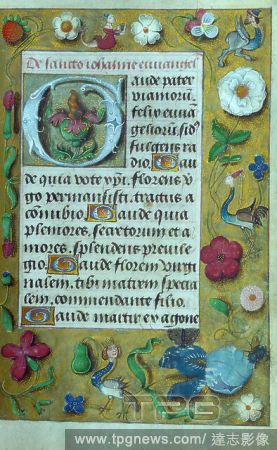 De sancto iohanne euuangel
Gaude pater
viamoru
felix euua
gelioru sido
fulgens ra
dio Gau
de quia vote xpi florens v
go permansisti tractus a
conubio Gaude quia
plemores secretorum et a
mores splendens preuile
gio Gaude florem virgi
nalem tibi matrem specia
lem commendante filio
Gaude martir ex agone
TPG
www.tpgnews.com/ 達志影像